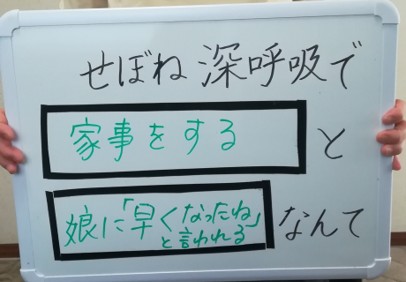 せぼね深呼吸で
家事をすると
娘に「早くなったね」
と言われるなんて